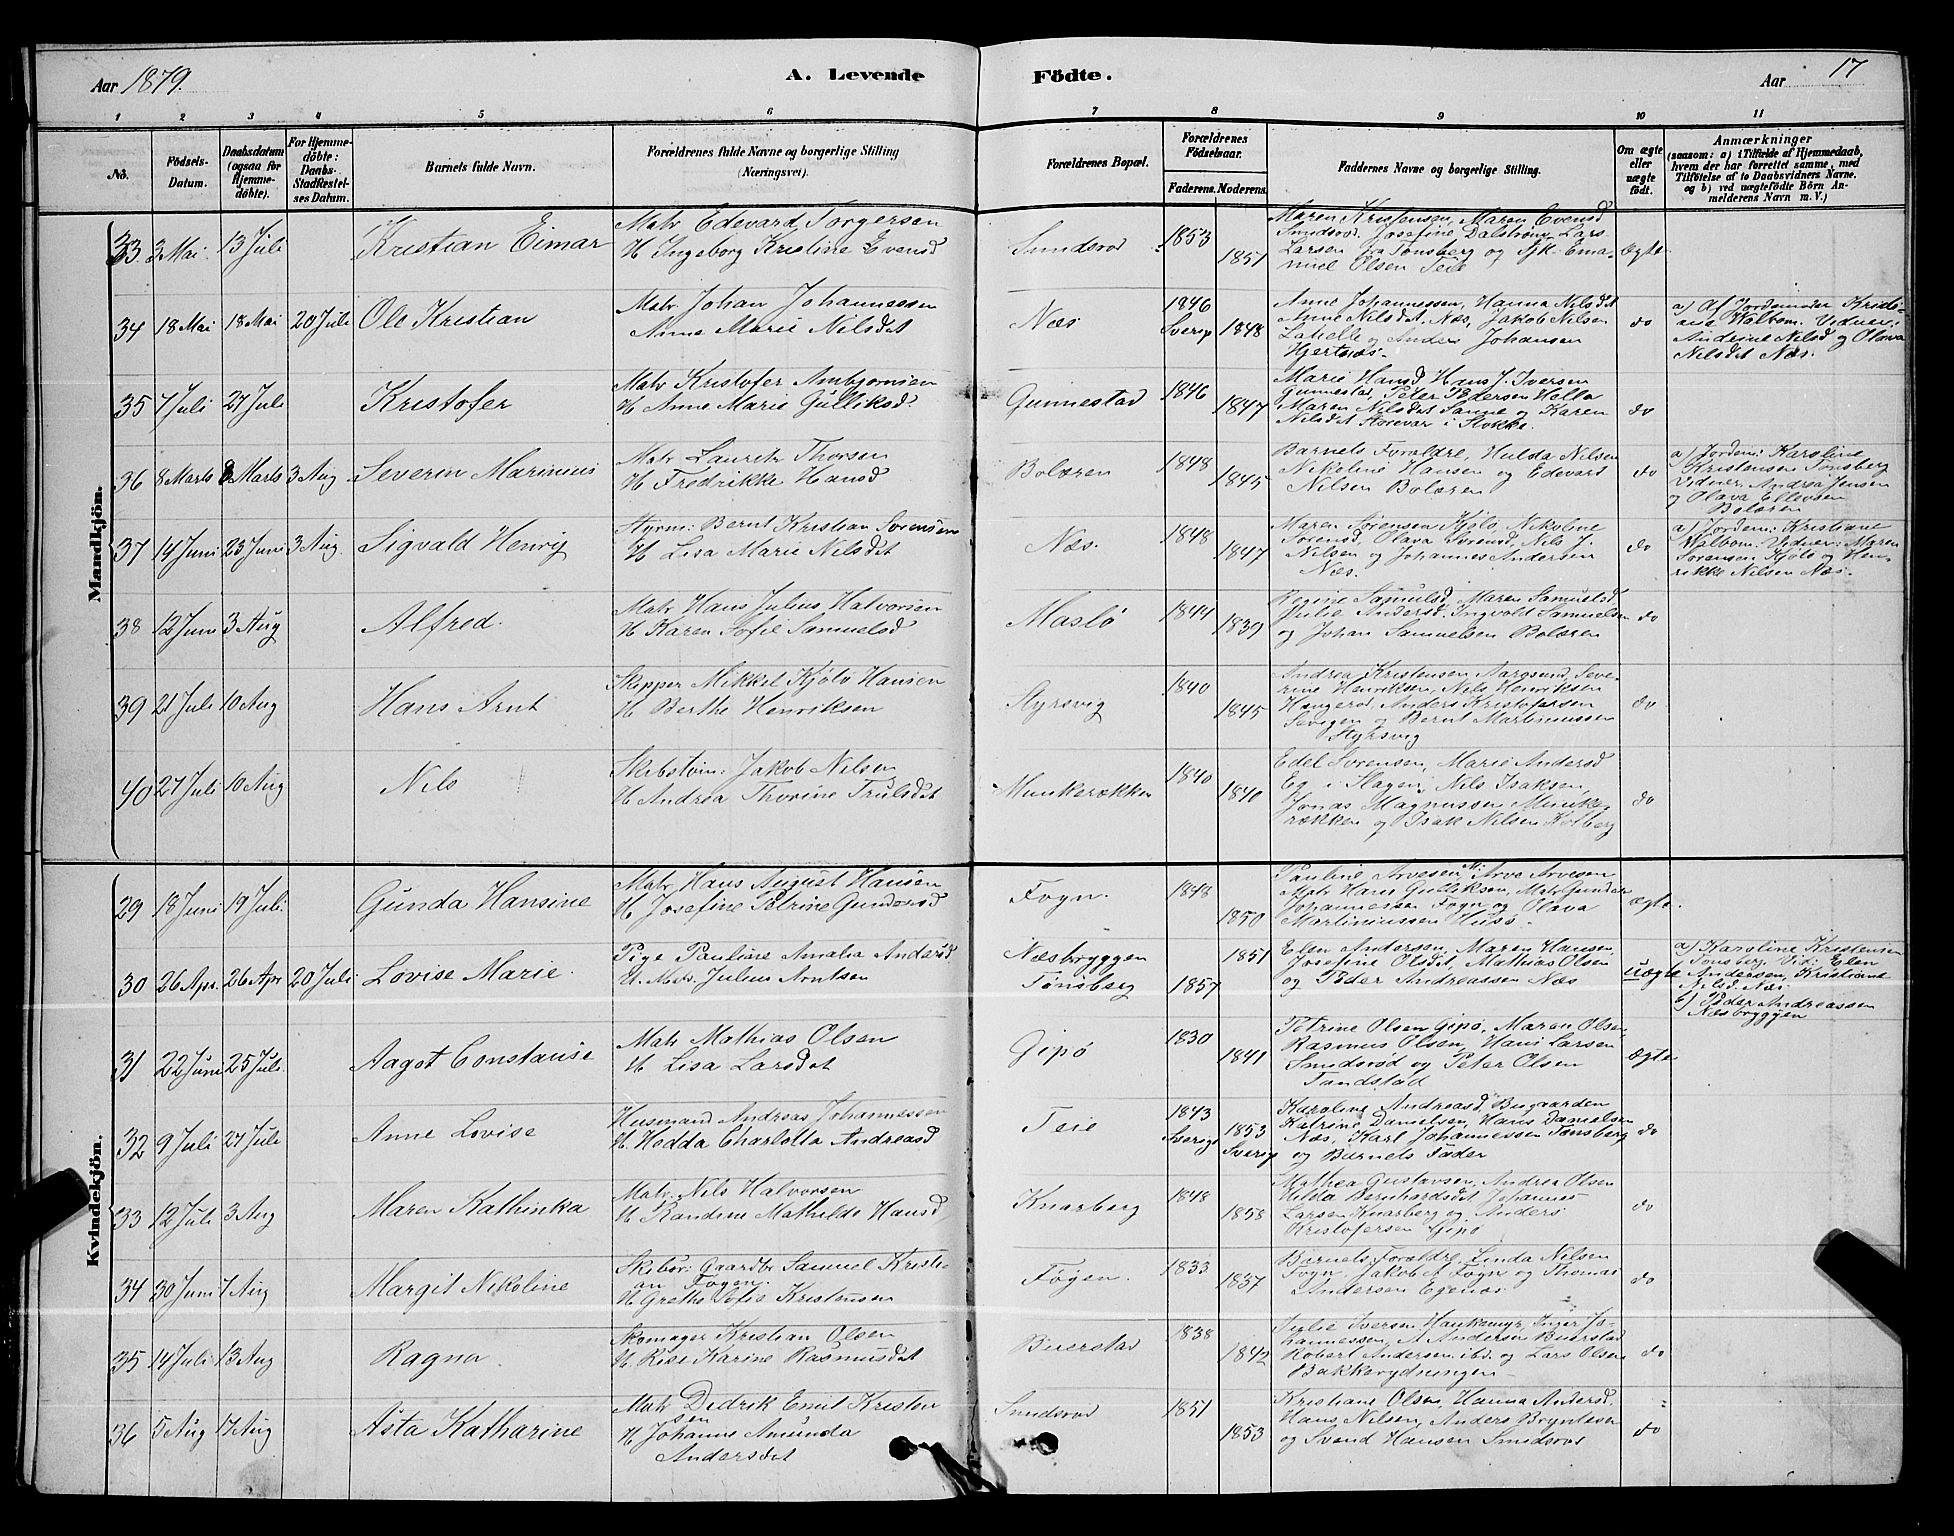 Aar 1879.
A. Levende Födte.
Aar 17
1 2 3 4 5 6 7 8 9 10 11
No.
Födsels-Datum.
Daabsdatum (ogsaa for Hjemmedöbte).
For Hjemmedöbte: Daabs-Stadfæstelses Datum.
Barnets fulde Navn.
Forældrenes fulde Navne og borgerlige Stilling (Næringsvei).
Forældrenes Bopæl.
Forældrenes Födselsaar.
Faderens. Moderens.
Faddernes Navne og borgerlige Stilling.
Om ægte eller uægte födt.
Anmærkninger
(saasom: a) i Tilfælde af Hjemmedaab, hvem der har forrettet samme, med Tilföielse af to Daabsvidners Navne, og b) ved uægtefödte Börn Anmelderens Navn m. V.)
Mandkjön.
33. 3 Mai 13 Juli
Kristian Eimar
Matr Edevard Torgersen
H Ingeborg Kristine Evensd
Smidsrød
1853
1851
Maren Kristensen, Maren Evensd
Smidsrød, Josefine Dalstrøm, Lars
Larsen Tønsberg og Sjk. Ema-
nuel Olsen Teie
ægte
34 18 Mai 18 Mai 20 Juli
Ole Kristian
Matr. Johan Johannessen
Anne Marie Nilsdet
Næs
1846
Sverig
1848
Anne Johannessen, Hanna Nilsdet
Anne Nilsdet, Næs, Jakob Nilsen
og Anders Johansen
Hjertnæs.
do
a) Af Jordemoder Kristi-
ane Walbom. Vidner:
Andrine Nilsd og Olava
Nilsdet Næs.
35 7 Juli 27 Juli
Kristofer
Matr Kristofer Ambjørnsen
H Anne Marie Gulliksd.
Gunnestad
1846
1847
Marie Hansd, Hans J. Iversen
Gunnestad, Peter Pedersen Holla
Maren Nilsdet Sanne og Karen
Nilsdet Storevar i Stokke.
do
36 8 Marts 8 Marts 3 Aug
Severin Marinius
Matr Lauritz Thorsen
H Fredrikke Hansd
Bolæren
1848
1845
Barnets Forældre, Hulda Nilsen
Nikoline Hansen og Edevart
Nilsen Bolæren
do
a) Jordem: Karoline
Kristensen Tønsberg
Vidner, Andrea Jensen
og Olava Ellevsen
Bolæren
37 14 Juni 23 Juni 3 Aug.
Sigvald Henrig
Styrm: Bernt Kristian Sørensen
H Lisa Marie Nilsdet
Næs.
1848
1847
Maren Sørensen Kjølø, Nikoline
Sørensd, Olava Sørensd, Nils J.
Nilsen og Johannes Andersen
Næs.
do
a) Jordem: Kristiane
Walbom. Vidner: Maren
Sørensen, Kjølø og Hen-
rikke Nilsen Næs.
38 12 Juni 3 Aug
Alfred.
Matr Hans Julius Halvorsen
H Karen Sofie Samuelsd
Maslø
1844
1839
Regine Samuelsd, Maren Samuelsd
Julie Andersd, Ingvold Samuelsen
og Johan Samuelsen Bolæren
do
39 21 Juli 10 Aug
Hans Arnt
Skipper Mikkel Kjølø Hansen
H Berthe Henriksen
Styrsvig
1840
1845
Andrea Kristensen Aargsund, Seve-
rine Henriksen, Nils Henriksen
Haugerød, Anders Kristofersen
og Bernt Martinussen
Styrsvig
do
40 27 Juli 10 Aug
Nils
Skibstøm: Jakob Nilsen
H Andrea Thorine Trulsdet
Munkerækken
1840
1840
Edel Sørensen, Marie Andersd
Eg i Slagen, Nils Isaksen,
Jonas Magnussen Munke-
rækken og Isak Nilsen Kolberg
do
Kvindekjön.
29 18 Juni 19 Juli
Gunda Hansine
Matr. Hans August Hansen
H Josefine Petrine Gundersd
Føgn.
1848
1850
Pauline Arvesen, Arve Arvesen
Matr Hans Gulliksen, Matr Gunder
Johannessen Føgn og Olava
Martinussen Husø.
ægte
30 26 Apr. 26 Apr 20 Juli
Lovise Marie.
Pige Pauline Amalia Andersd.
U. Matr. Julius Arntsen
Næsbryggen
Tønsberg
1851
1857
Elen Andersen, Maren Hansen,
Josefine Olsdet, Mathias Olsen
og Peder Andreassen Næs
uægte
a) Karoline Kristensen
Tønsberg. Vid: Elen
Andersen, Kristiane
Nilsd. Næs.
b) Peder Andreassen
Næsbryggen
31 22 Juni 25 Juli.
Aagot Constanse
Matr Mathias Olsen
H Lisa Larsdet
Gipø
1830
1841
Petrine Olsen Gipø, Maren Olsen
Rasmus Olsen, Hans Larsen
Smidsrød og Peter Olsen
Tandstad
ægte
32 9 Juli 27 Juli
Anne Lovise
Husmand Andreas Johannessen
H. Hedda Charlotta Andreasd
Teie
1843
Sverig
1853
Sverig
Karoline Andreasd, Bugaarden
Katrine Danielsen, Hans Danielsen
Næs, Karl Johannessen Tønsberg
og Barnets Fader
do
33 12 Juli 3 Aug
Maren Kathinka
Matr. Nils Halvorsen
H. Randine Mathilde Hansd
Knarberg
1848
1858
Mathea Gustavsen, Andrea Olsen
Hilda Bernhardsdet, Johannes
Larsen Knarberg og Anders
Kristofersen Gipø
do
34 30 Juni 7 Aug
Margit Nikoline
Skibsr: Gaardbr Samuel Kristi-
an Føgen.
H Grethe Sofie Kristensen
Føgen.
1833
1837
Barnets Forældre, Linda Nilsen
Føgn, Jakob A Føgn og Thomas
Andersen Egenæs
do
35 14 Juli 13 Aug
Ragna.
Skomager Kristian Olsen
H. Rise Karine Rasmusdet
Buerstad
1838
1842
Julie Iversen Haukemyr, Inger Jo-
hannessen, A Andersen Buerstad
Robert Andersen ibd. og Lars Olsen
Bakkerydningen
do
36 5 Aug 17 Aug
Asta Katharine
Matr Didrik Emil Kristen
sen
H Johanne Amunda
Andersdet
Smidsrød
1851
1853
Kristiane Olsen, Hanna Andersd.
Hans Nilsen, Anders Bryntesen
og Svend Hansen Smidsrød
do